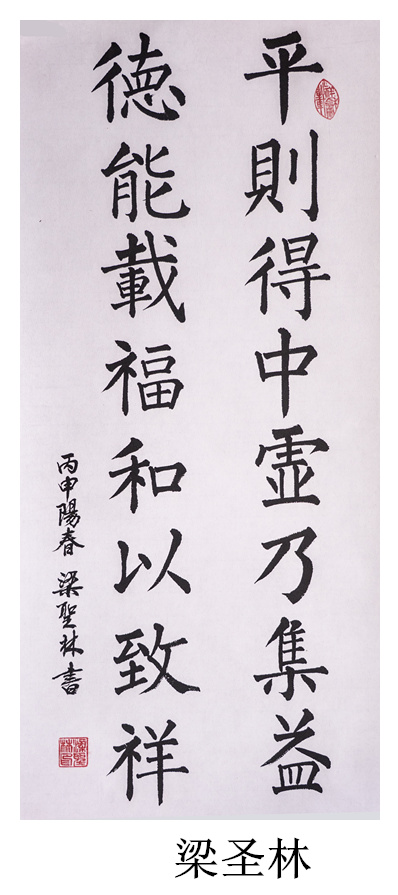 平則得中虛乃集益
德能載福和以致祥
丙申陽春 梁聖林書
梁圣林